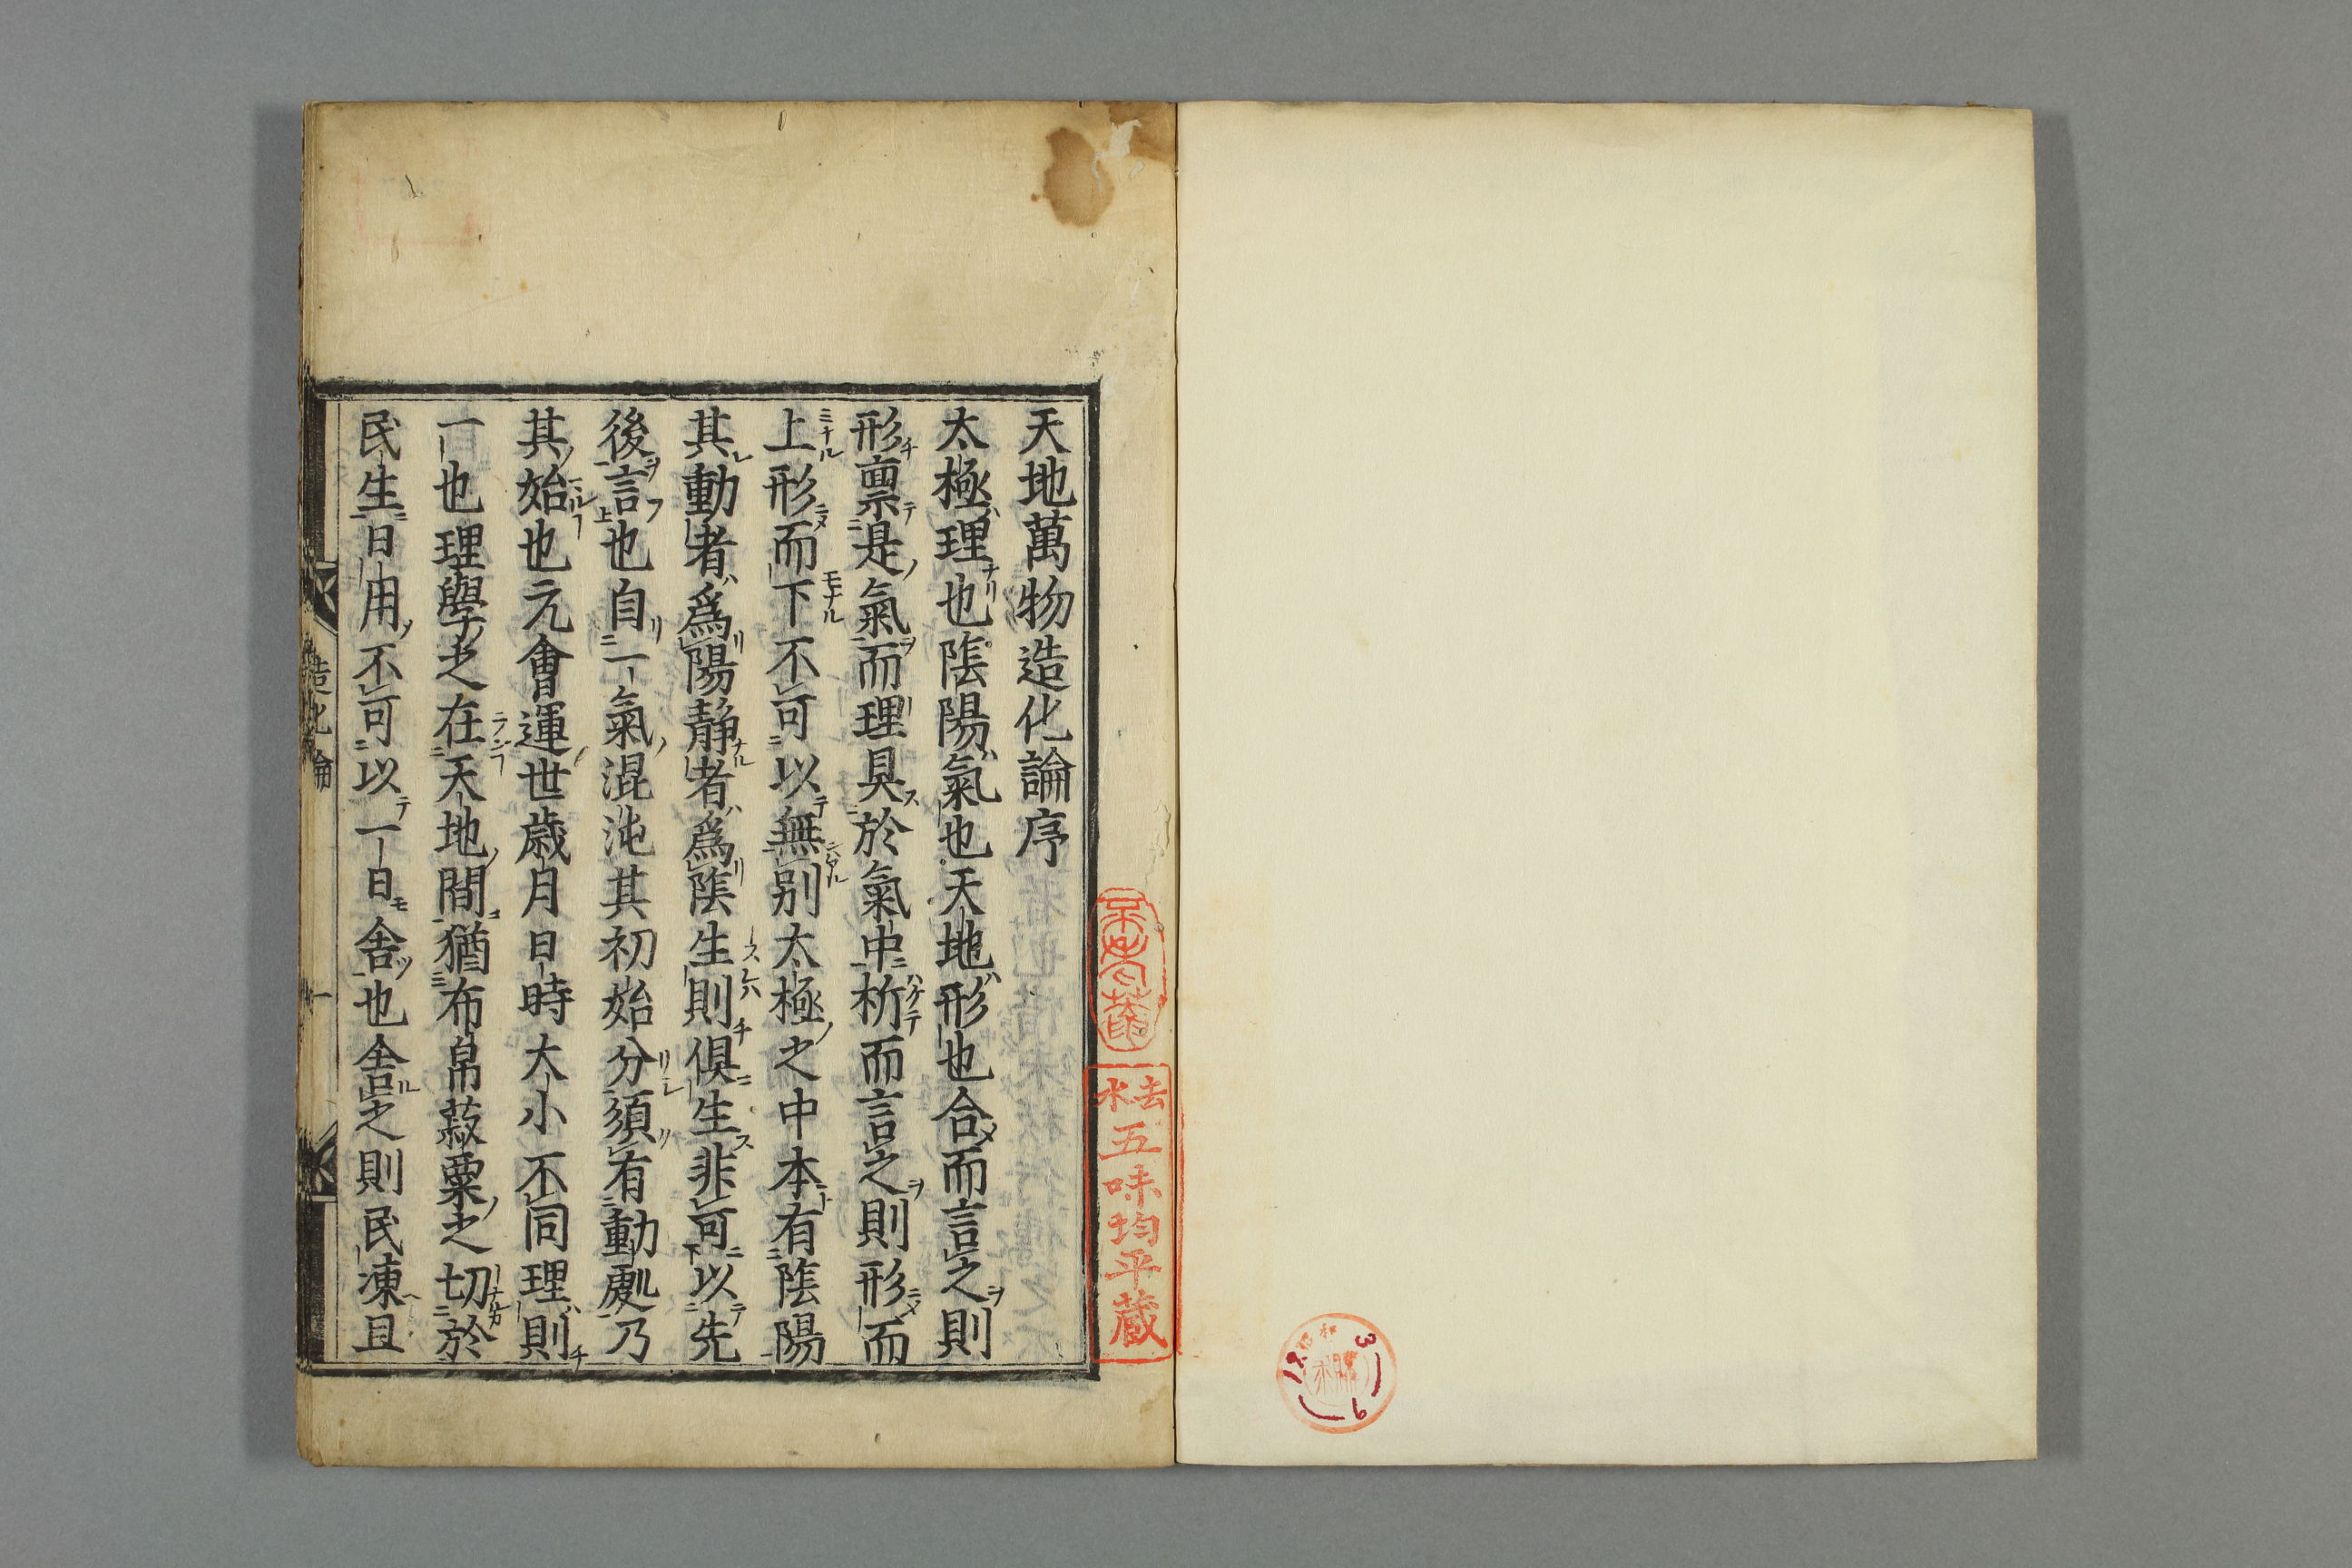 天地萬物造化論序
太極理也陰陽氣也天地形也合而言之則
形禀是氣而理具於氣中析而言之則形而
上形而下不可以無别太極之中本有陰陽
其動者爲陽静者爲陰生則俱生非可以先
後言也自一氣混沌其初始分須有動處乃
其始也元會運世歳月日時大小不同理則
一也理學之在天地間猶布帛菽粟之切於
民生日用不可以一日舍也舍之則民凍且
造化論
一
去水
五味均平蔵